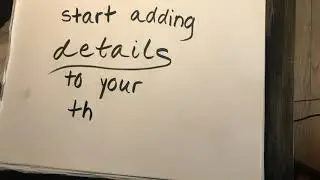 start adding
details
to your
th